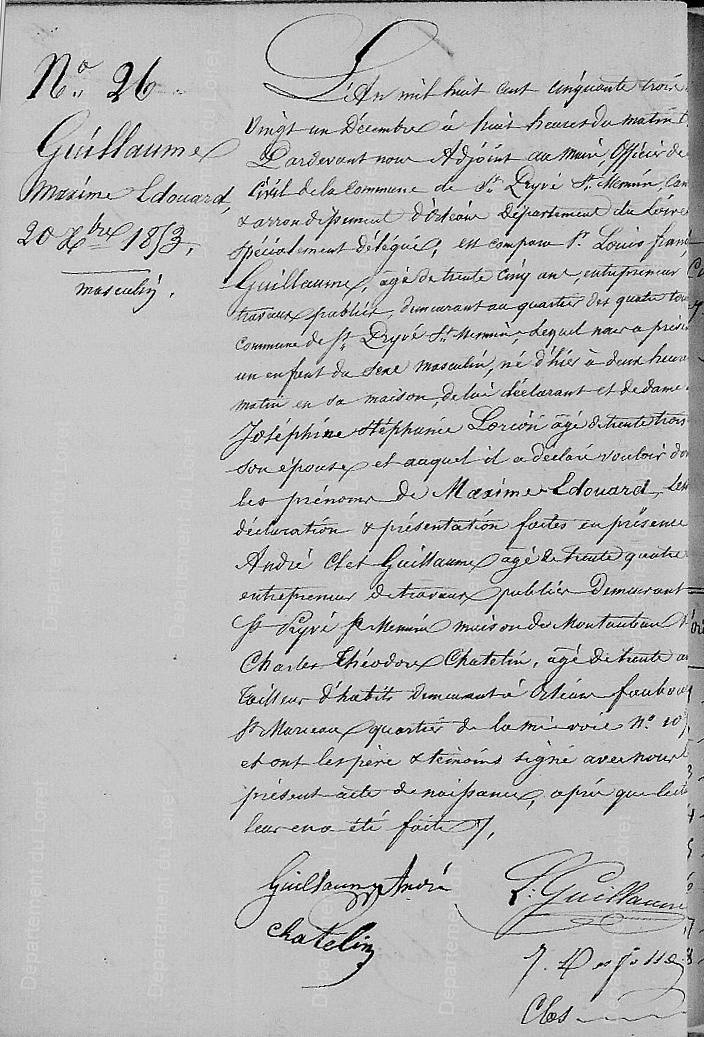 No. 26
Guillaume
Maxime Edouard,
20 Xbre 1853,
masculin.
L'An mil huit cent cinquante trois
vingt un Décembre à huit heures du matin
Pardevant nous Adjoint au Maire Officier de
Civil de la Commune de St. Pryvé St. Mesmin, Can
& arrondissement d'Orléans Département du Loiret
spécialement délégué, est comparu Sr. Louis franç
Guillaume, agé de trente cinq ans, entrepreneur
travaux publics, demeurant au quartier des quatre
commune de St. Pryvé St. Mesmin, Lequel nous a prés
un enfant du sexe masculin, né d'hier à deux heures
matin en sa maison, de lui déclarant et de dame
Joséphine Stéphanie Lorion agé de trente trois
son épouse et auquel il a déclaré vouloir do
les prénoms de Maxime Edouard, Les
déclaration & présentation faites en présence
André Guillaume, agé de trente quatre
entrepreneur de travaux publics Demeurant
St Pryvé St Mesmin maison de Montauban
Charles Théodore Chatelin, agé de trente a
tailleur d'habits demeurant à Orléans faubou
St Marceau quartier de la mi voie No. 10
et ont les père & témoins signé avec nous
présent acte de naissance, après que lect
leur en a été faite
Guillaume André
L. Guillaume
chatelin